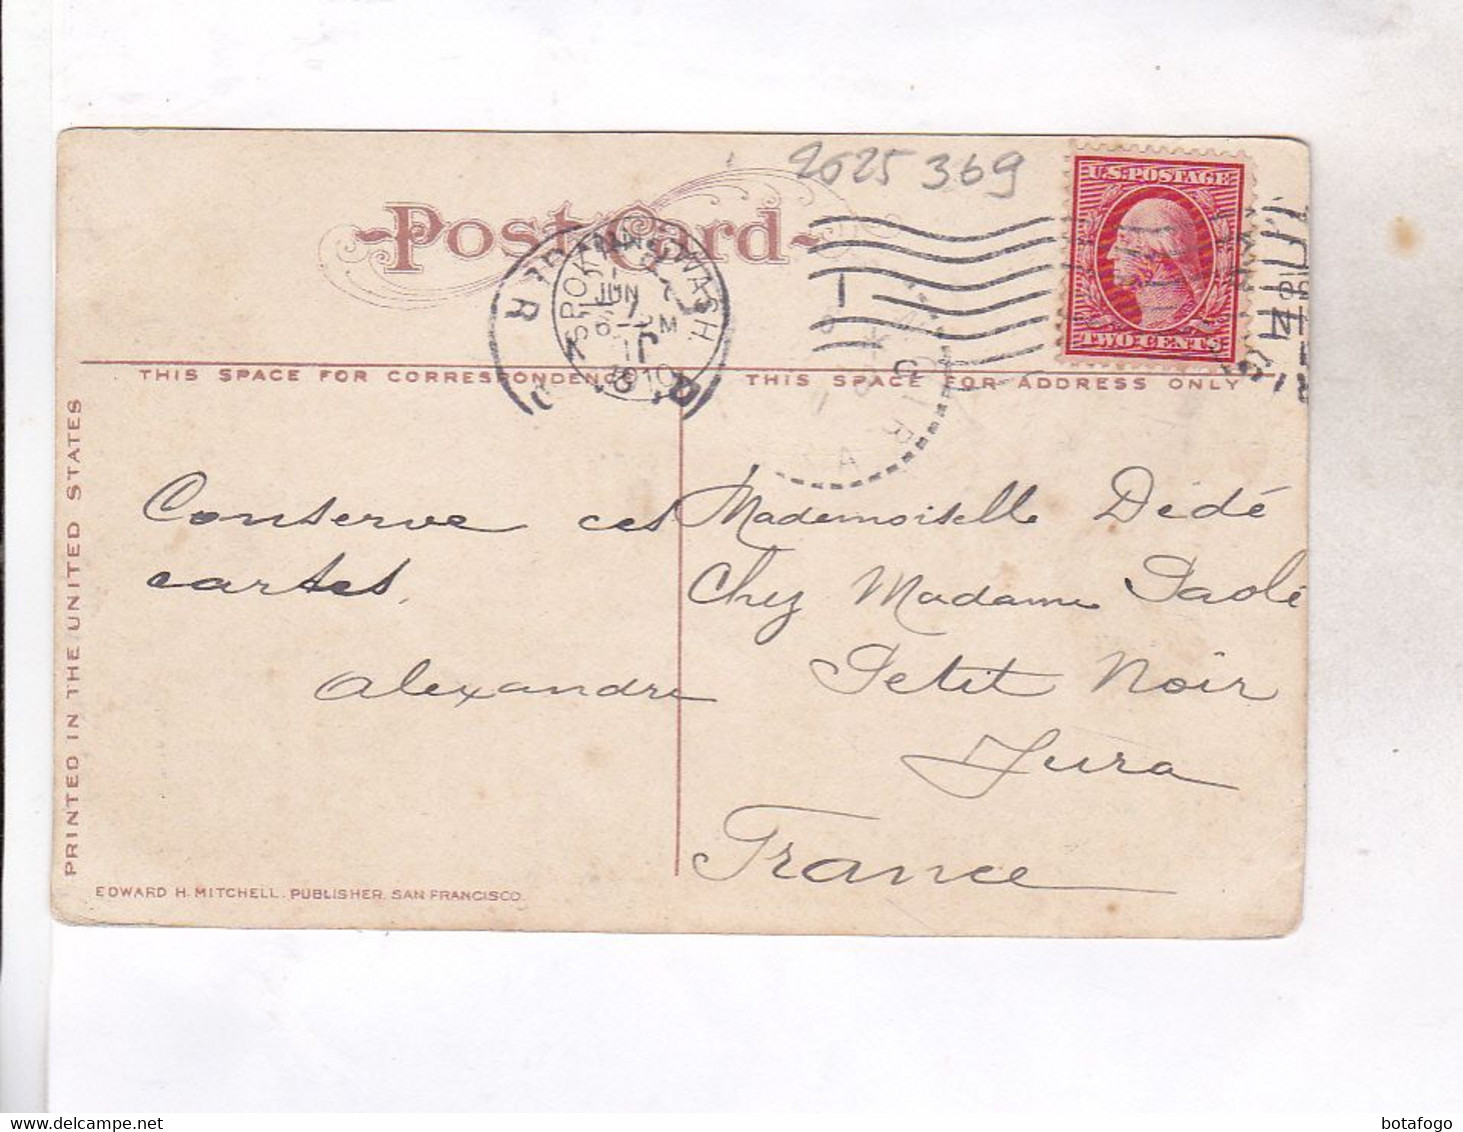 2025 369
Post Card
U.S. POSTAGE
TWO CENTS
SPOKANE WASH.
JUN 7
6 - PM
1910
THIS SPACE FOR CORRESPONDENCE
THIS SPACE FOR ADDRESS ONLY
PRINTED IN THE UNITED STATES
Conserve ces
cartes.
Alexandre
Mademoiselle Dédé
Chez Madame
Petit Noir
Jura
France
EDWARD H. MITCHELL, PUBLISHER, SAN FRANCISCO.
botafogo